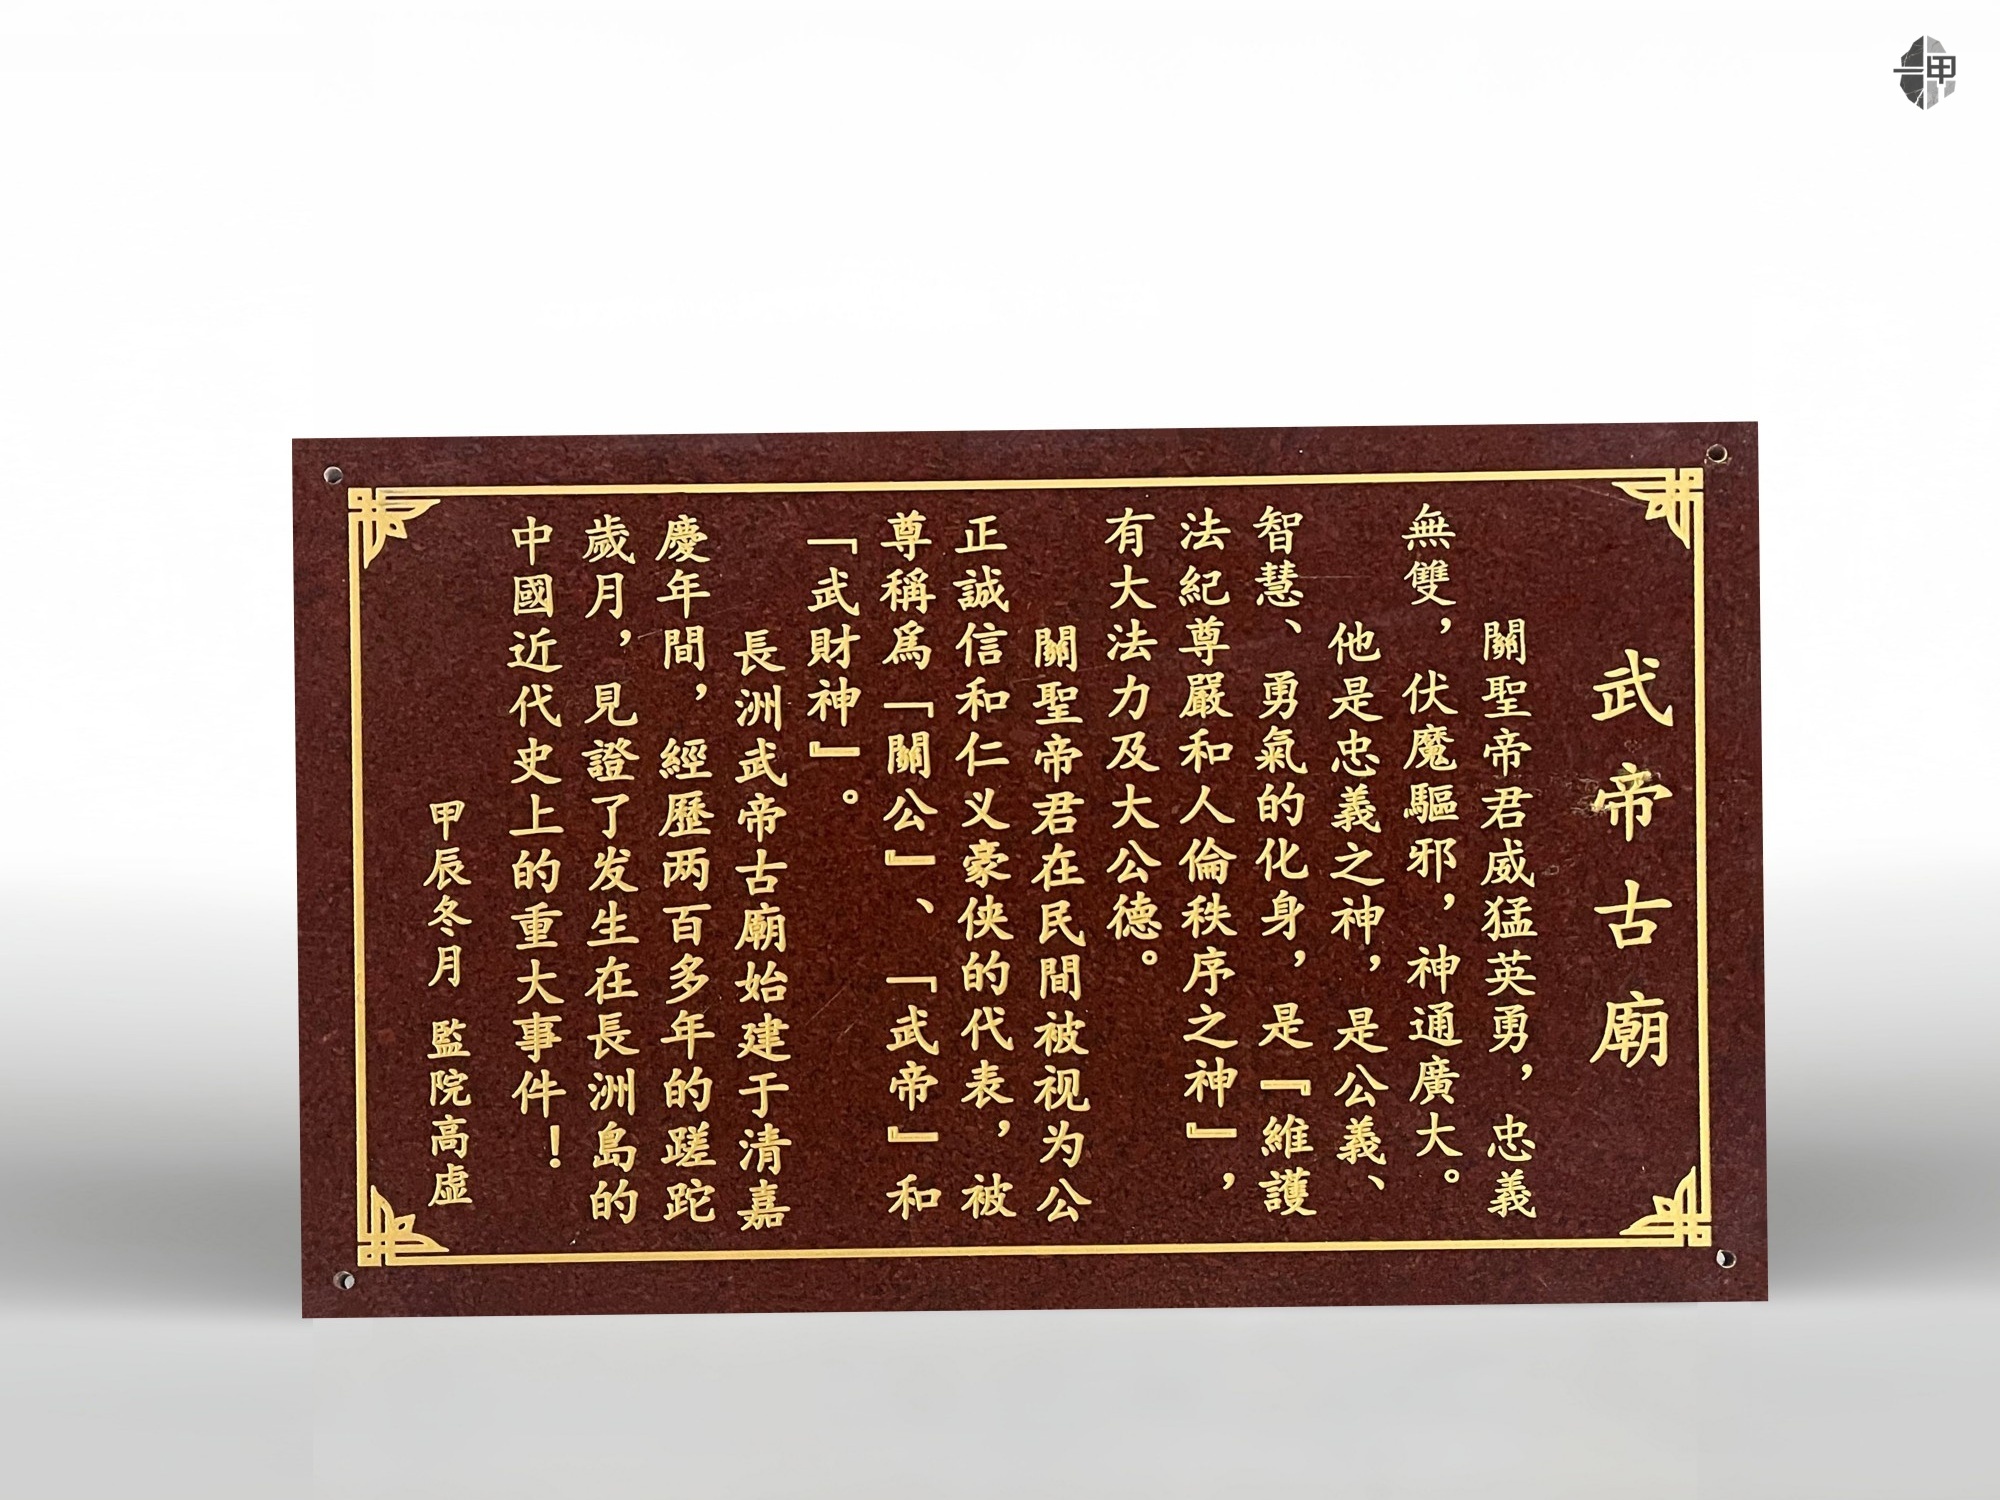 武帝古廟
關聖帝君威猛英勇，忠義
無雙，伏魔驅邪，神通廣大。
他是忠義之神，是公義、
智慧、勇氣的化身，是『維護
法紀尊嚴和人倫秩序之神』，
有大法力及大公德。
關聖帝君在民間被视为公
正誠信和仁义豪侠的代表，被
尊稱爲「關公』、「武帝』和
「武財神』。
長洲武帝古廟始建于清嘉
慶年間，經歷两百多年的蹉跎
歲月，見證了发生在長洲島的
中國近代史上的重大事件！
甲辰冬月 監院高虛
一甲